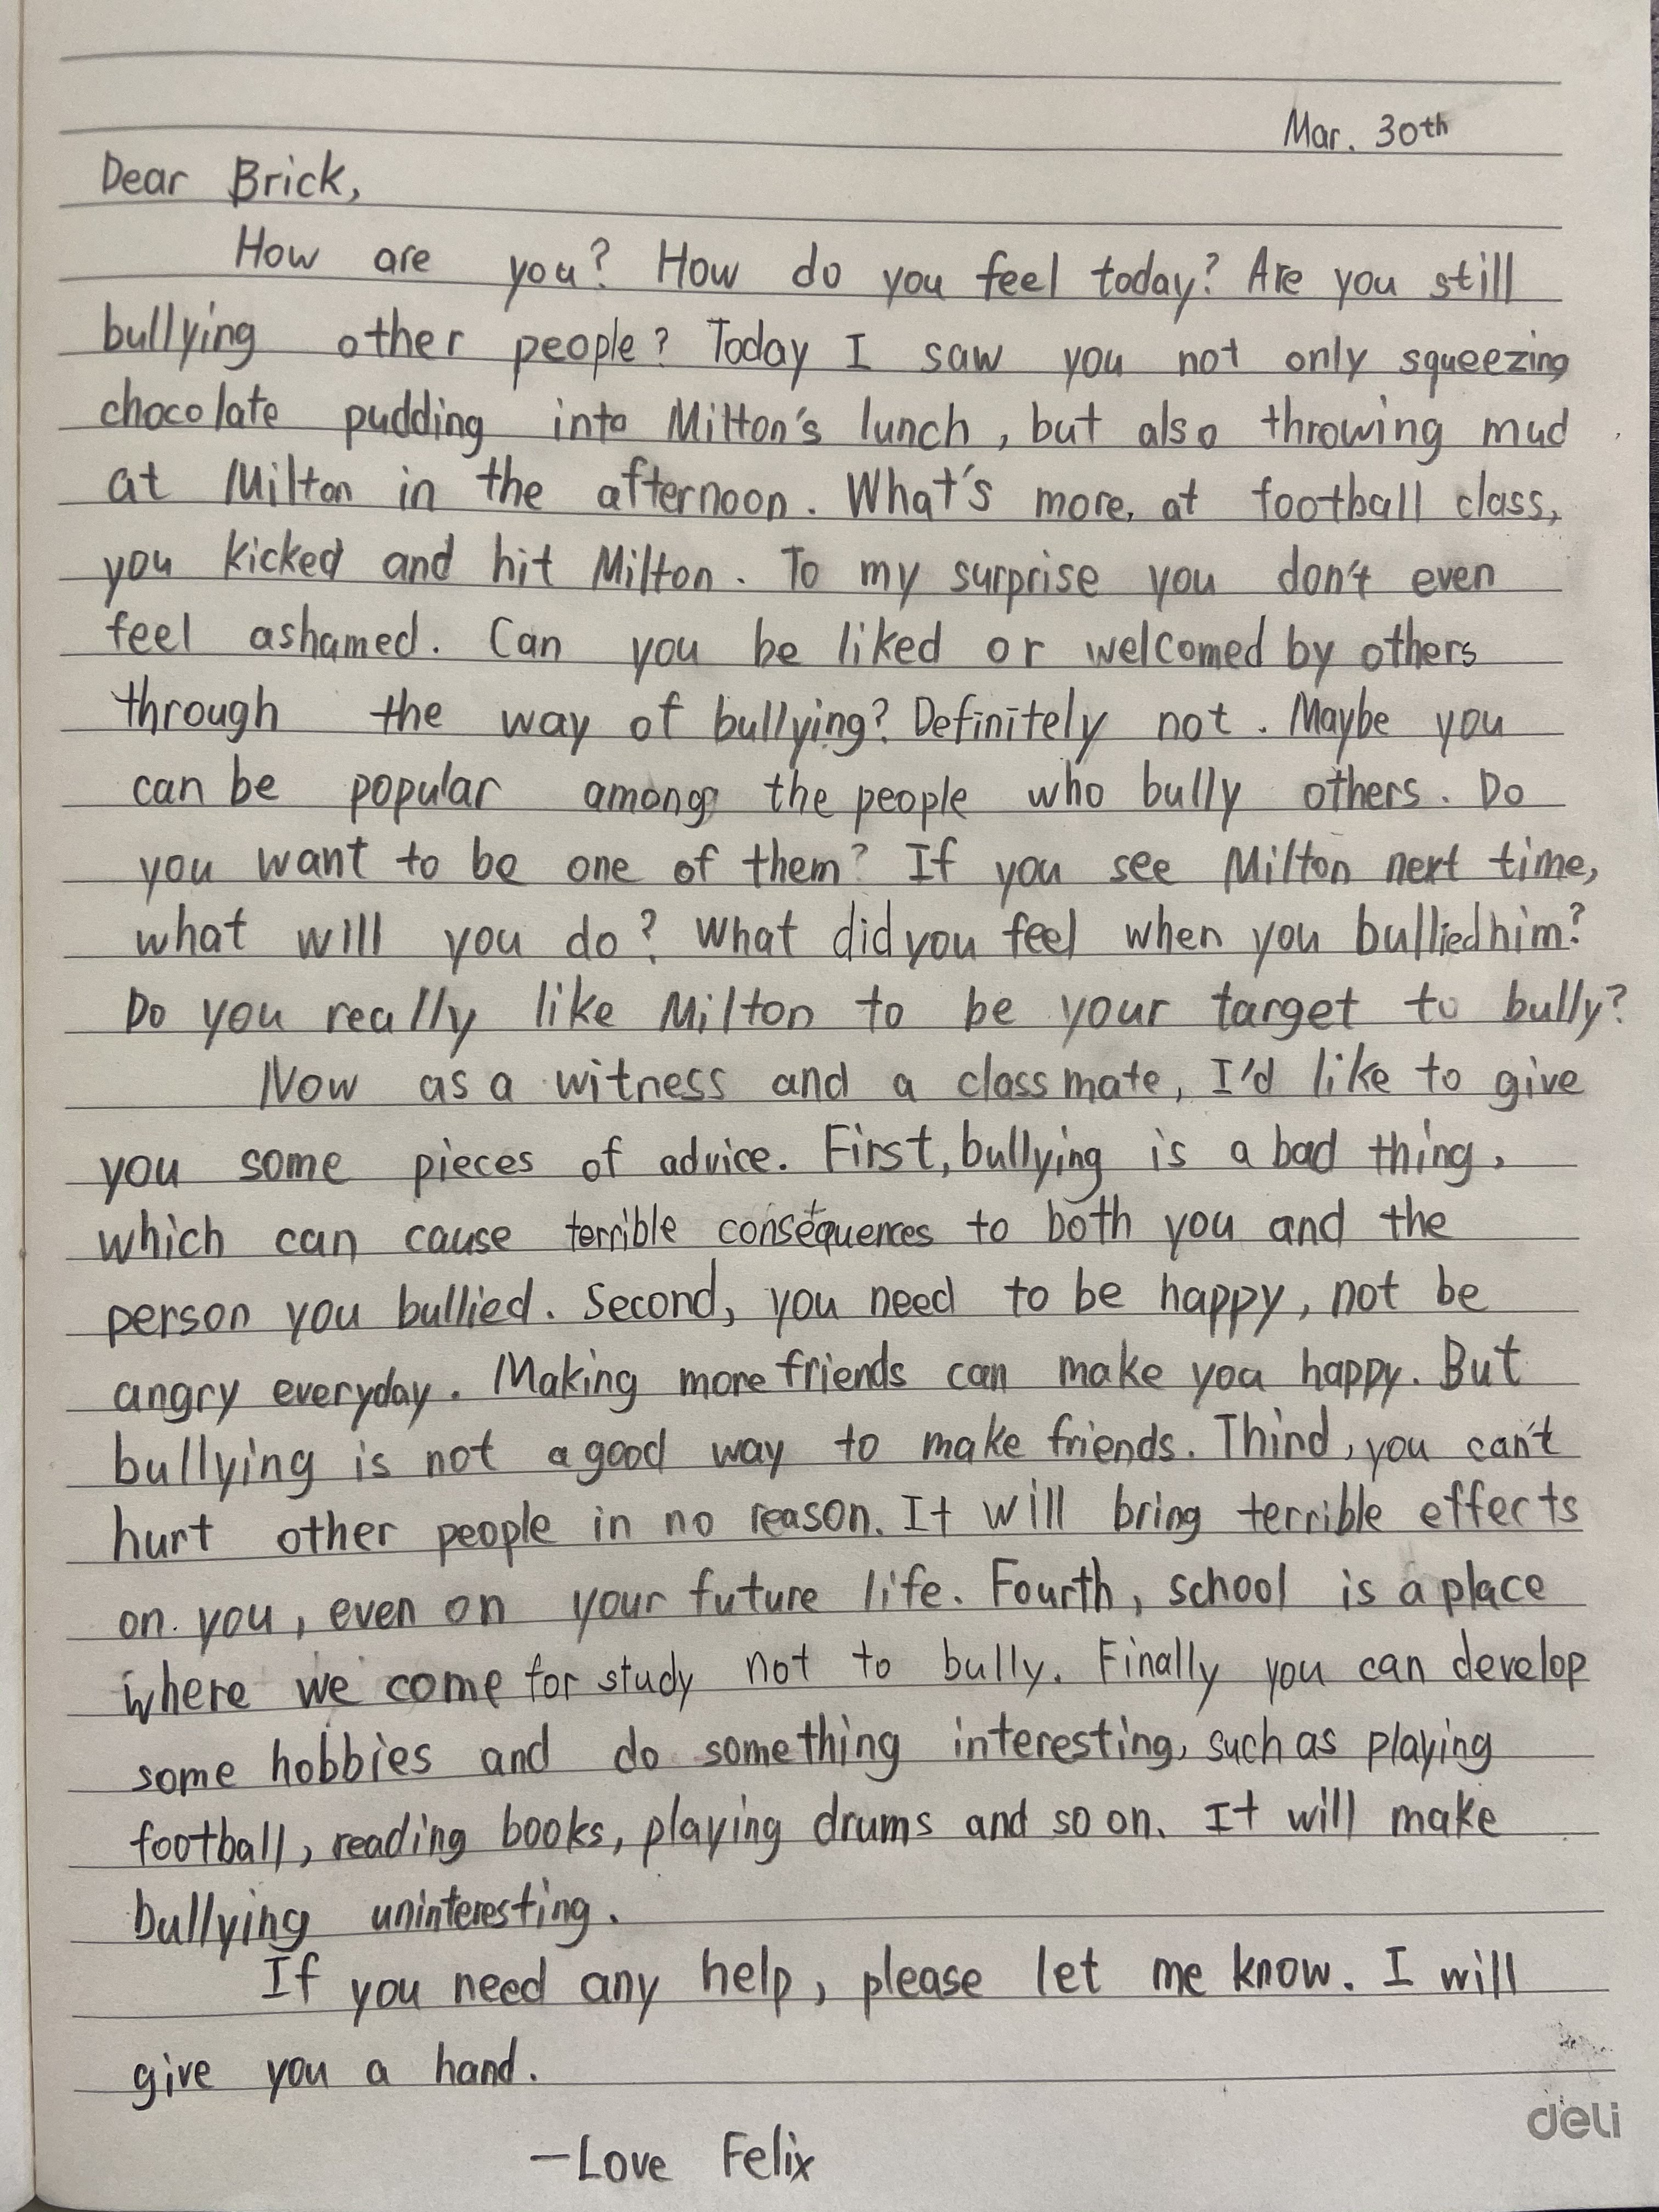 Mar. 30th
Dear Brick,
How are you? How do you feel today? Are you still
bullying other people? Today I saw you not only squeezing
chocolate pudding into Milton's lunch, but also throwing mud
at Milton in the afternoon. What's more, at football class,
you kicked and hit Milton. To my surprise you don't even
feel ashamed. Can you be liked or welcomed by others
through the way of bullying? Definitely not. Maybe you
can be popular among the people who bully others. Do
you want to be one of them? If you see Milton next time,
what will you do? What did you feel when you bullied him?
Do you really like Milton to be your target to bully?
Now as a witness and a classmate, I'd like to give
you some pieces of advice. First, bullying is a bad thing,
which can cause terrible consequences to both you and the
person you bullied. Second, you need to be happy, not be
angry everyday. Making more friends can make you happy. But
bullying is not a good way to make friends. Third, you can't
hurt other people in no reason. It will bring terrible effects
on you, even on your future life. Fourth, school is a place
where we come for study not to bully. Finally you can develop
some hobbies and do something interesting, such as playing
football, reading books, playing drums and so on. It will make
bullying uninteresting.
If you need any help, please let me know. I will
give you a hand.
deli
—Love Felix